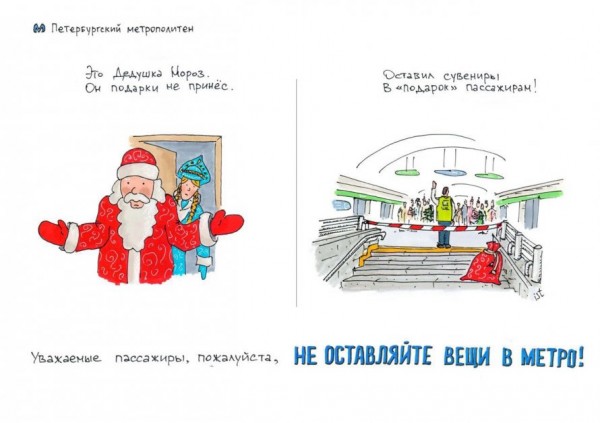 Петербургский метрополитен
Это Дедушка Мороз.
Он подарки не принёс.
Оставил сувениры
В «подарок» пассажирам!
Уважаемые пассажиры, пожалуйста, НЕ ОСТАВЛЯЙТЕ ВЕЩИ В МЕТРО!